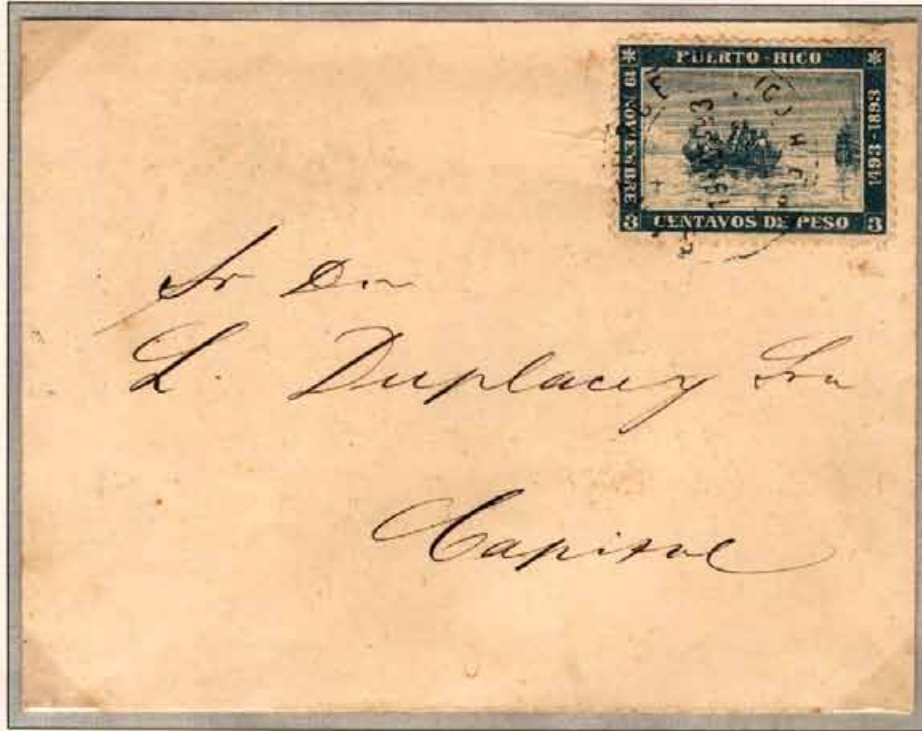 PUERTO-RICO
19 NOVIEMBRE
1493-1893
3 CENTAVOS DE PESO 3
Sr Don
L. Duplacey
Capital